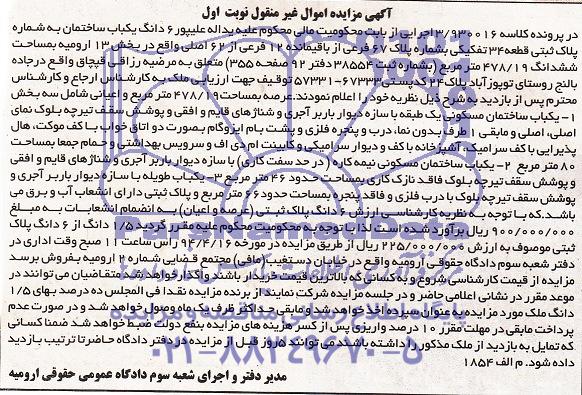 آگهی مزایده اموال غیر منقول نوبت اول
در پرونده کلاسه ۳/۹۳۰۰۱۶ اجرایی از بابت محکومیت مالی محکوم علیه یداله علیپور ۶ دانگ یکباب ساختمان به شماره
پلاک ثبتی قطعه ۳۴ تفکیکی بشماره پلاک ۶۷ فرعی از باقیمانده ۱۲ فرعی از ۶۲ اصلی واقع در بخش ۱۳ ارومیه بمساحت
ششدانگ ۴۷۸/۱۹ متر مربع (بشماره ثبت ۳۸۵۵۴ دفتر ۹۲ صفحه ۳۵۵) متعلق به مرضیه رزاقی قیچاق واقع در جاده
بالنج روستای توپوزآباد پلاک ۲۴ کدپستی ۶۷۳۳۳-۵۷۳۳۱ توقیف جهت ارزیابی ملک به کارشناس ارجاع و کارشناس
محترم پس از بازدید به شرح ذیل نظریه خود را اعلام نمودند. عرصه بمساحت ۴۷۸/۱۹ متر مربع و اعیانی شامل سه بخش
۱- یکباب ساختمان مسکونی یک طبقه با سازه دیوار باربر آجری و شناژهای قایم و افقی و پوشش سقف تیرچه بلوک نمای
اصلی، اصلی و مابقی ۱ طرف بدون نما، درب و پنجره فلزی و پشت بام ایزوگام بصورت دو اتاق خواب با کف موکت، هال
پذیرایی با کف سرامیک، آشپزخانه با کف و دیوار سرامیکی و کابینت ام دی اف و سرویس بهداشتی و حمام جمعا بمساحت
۸۰ متر مربع ۲- یکباب ساختمان مسکونی نیمه کاره (در حد سفت کاری) با سازه دیوار باربر آجری و شناژهای قایم و افقی
و پوشش سقف تیرچه بلوک فاقد نازک کاری بمساحت حدود ۴۶ متر مربع ۳- یکباب طویله با سازه دیوار باربر آجری و
پوشش سقف تیرچه بلوک با درب فلزی و فاقد پنجره بمساحت حدود ۶۶ متر مربع و پلاک ثبتی دارای انشعاب آب و برق می
باشد. که با توجه به نظریه کارشناسی ارزش ۶ دانگ پلاک ثبتی (عرصه و اعیان) به انضمام انشعابات به مبلغ
۹۰۰/۰۰۰/۰۰۰ ریال برآورد شده است لذا با توجه به محکومیت محکوم علیه مقرر گردید ۱/۵ دانگ از ۶ دانگ پلاک
ثبتی موصوف به ارزش ۲۲۵/۰۰۰/۰۰۰ ریال از طریق مزایده در مورخه ۹۴/۴/۱۶ راس ساعت ۱۱ صبح وقت اداری در
دفتر شعبه سوم دادگاه حقوقی ارومیه واقع در خیابان دستغیب (مافی) مجتمع قضایی شماره ۲ ارومیه بفروش برسد
مزایده از قیمت کارشناسی شروع و به کسانی که بالاترین قیمت خریدار باشند واگذار خواهد شد متقاضیان می توانند در
موعد مقرر در نشانی اعلامی حاضر و در جلسه مزایده شرکت نمایند از برنده مزایده نقدا فی المجلس ده درصد بهای ۱/۵
دانگ ملک مورد مزایده به عنوان سپرده اخذ خواهد شد و مابقی حداکثر ظرف یک ماه وصول خواهد شد و در صورت عدم
پرداخت مابقی در مهلت مقرر ۱۰ درصد واریزی پس از کسر هزینه های مزایده بنفع دولت ضبط خواهد شد ضمنا کسانی
که تمایل به بازدید از ملک مذکور را داشته باشند می توانند ۵ روز قبل از مزایده در دفتر دادگاه حاضر تا ترتیب بازدید
داده شود. م الف ۱۸۵۴
مدیر دفتر و اجرای شعبه سوم دادگاه عمومی حقوقی ارومیه
۰۲۱-۸۸۳۴۹۶۷۰-۵